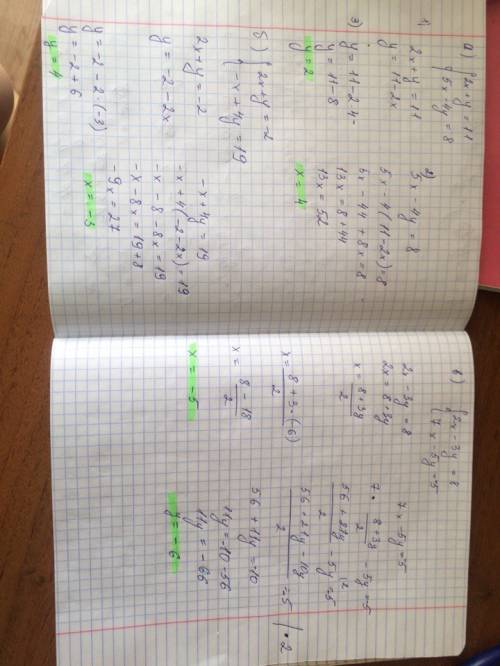 а) { 2x + y = 11
{ 5x - 4y = 8
1)
2x + y = 11
y = 11 - 2x
3)
y = 11 - 2·4
y = 11 - 8
y = 2
2)
5x - 4y = 8
5x - 4(11 - 2x) = 8
5x - 44 + 8x = 8
13x = 8 + 44
13x = 52
x = 4
б) { 2x + y = -2
{ -x + 4y = 19
2x + y = -2
y = -2 - 2x
y = -2 - 2·(-3)
y = -2 + 6
y = 4
-x + 4y = 19
-x + 4(-2 - 2x) = 19
-x - 8 - 8x = 19
-x - 8x = 19 + 8
-9x = 27
x = -3
в) { 2x - 3y = 8
{ 7x - 5y = -5
2x - 3y = 8
2x = 8 + 3y
x = 8 + 3y / 2
x = 8 + 3·(-6) / 2
x = 8 - 18 / 2
x = -5
7x - 5y = -5
7 · 8 + 3y / 2 - 5y = -5
56 + 21y / 2 - 5y (2 = -5
56 + 21y - 10y / 2 = -5 | · 2
56 + 11y = -10
11y = -10 - 56
11y = -66
y = -6